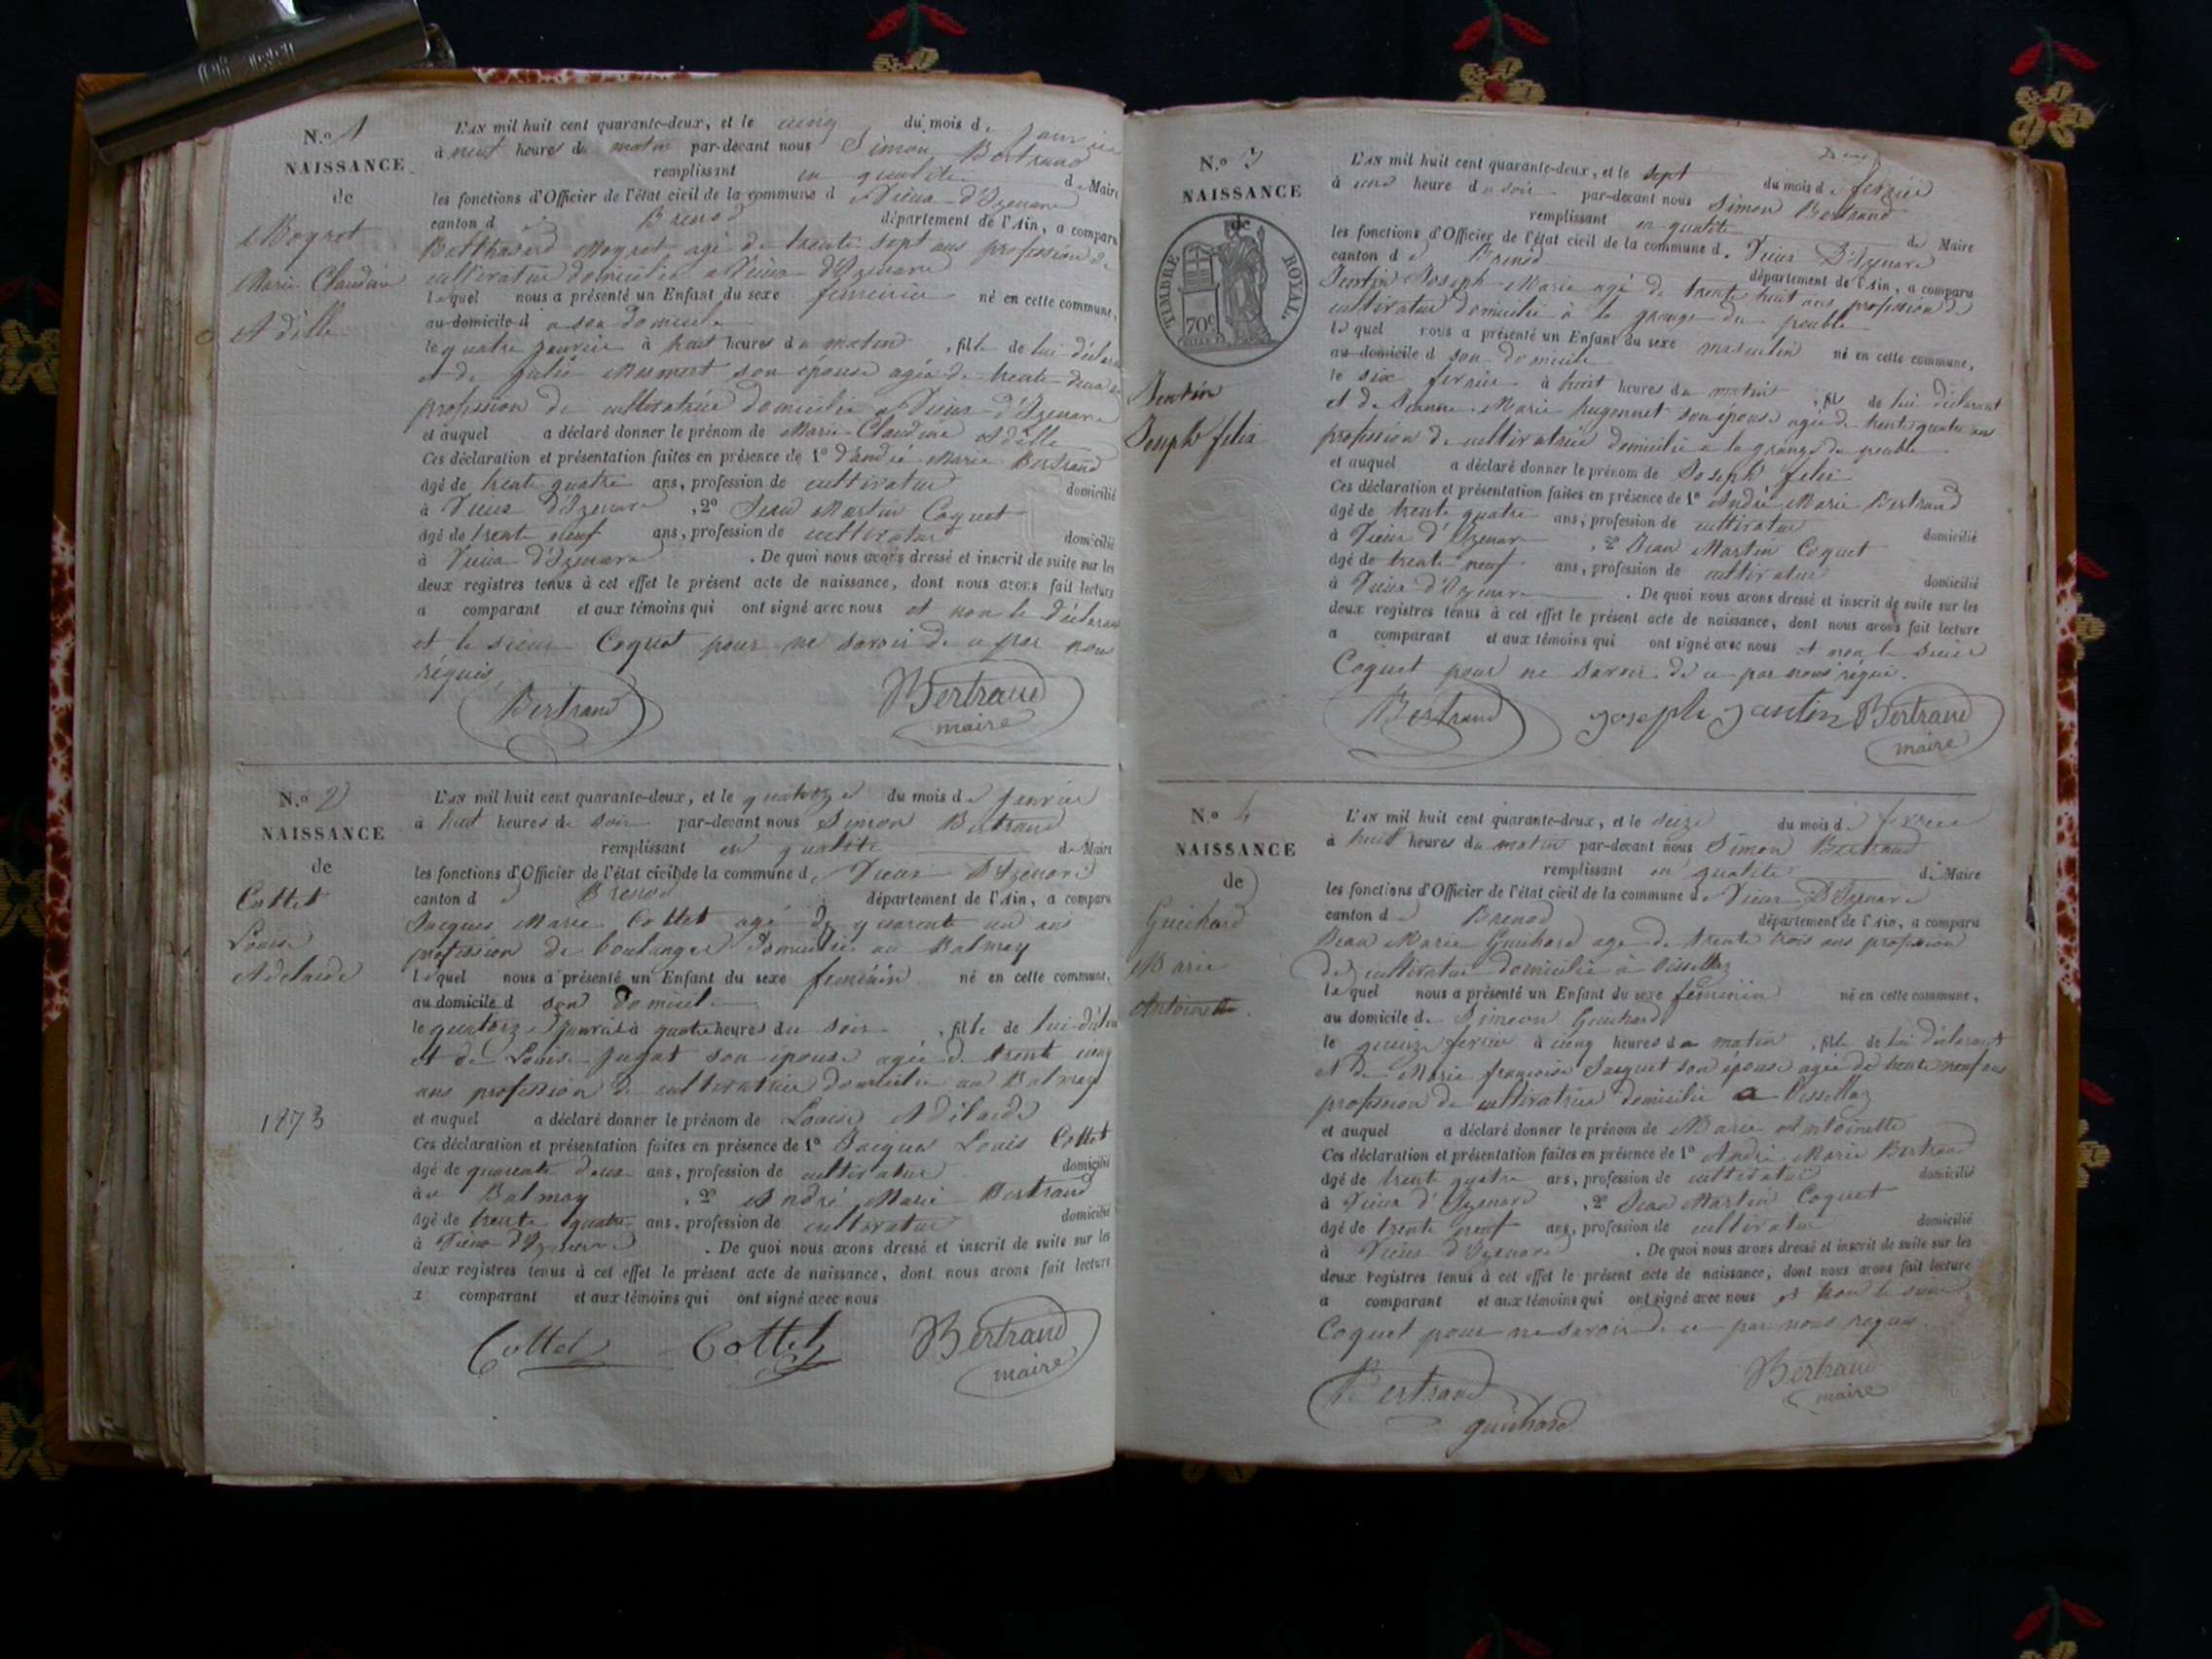 N.o 1
NAISSANCE
de
Moyret
Marie Claudine
Adille
L'AN mil huit cent quarante-deux, et le cinq du mois de janvier
à neuf heures du matin par-devant nous Simon Bertrand
remplissant en qualité de Maire
les fonctions d'Officier de l'état civil de la commune d Vieux d'Izenave
canton d Brenod département de l'Ain, a comparu
Balthasard Moyret agé de trente sept ans profession de
cultivateur domicilié a Vieux d'Izenave
lequel nous a présenté un Enfant du sexe feminin né en cette commune,
au domicile d a son domicile
le quatre janvier à huit heures du matin, fille de lui déclarant
et de julie son épouse agée de trente deux ans
profession de cultivatrice domicilié a Vieux d'Izenave
et auquel a déclaré donner le prénom de Marie Claudine Adille
Ces déclaration et présentation faites en présence de 1o D'andré Marie Bertrand
âgé de trente quatre ans, profession de cultivateur domicilié
à Vieux d'Izenave, 2o Jean Martin Coquet
âgé de trente neuf ans, profession de cultivateur domicilié
à Vieux d'Izenave. De quoi nous avons dressé et inscrit de suite sur les
deux registres tenus à cet effet le présent acte de naissance, dont nous avons fait lecture
a comparant et aux témoins qui ont signé avec nous et non le déclarant
et le sieur Coquet pour ne savoir de ce par nous
réquis,
Bertrand Bertrand
maire
N.o 2
NAISSANCE
de
Cottet
Louise
Adelaide
1873
L'AN mil huit cent quarante-deux, et le quatorze du mois de janvier
à huit heures du soir par-devant nous Simon Bertrand
remplissant en qualité de Maire
les fonctions d'Officier de l'état civil de la commune de Vieux D'Izenave
canton d Brenod département de l'Ain, a comparu
Jacques Marie Cottet agé de quarente un ans
profession de boulanger domicilié au Balmay
lequel nous a présenté un Enfant du sexe feminin né en cette commune,
au domicile d son domicile
le quatorze janvier à quatre heures du soir, fille de lui déclarant
et de Louise jugat son épouse agée de trente cinq
ans profession de cultivatrice domicilié au Balmay
et auquel a déclaré donner le prénom de Louise Adélaide
Ces déclaration et présentation faites en présence de 1o Jacques Louis Cottet
âgé de quarente deux ans, profession de cultivateur domicilié
à u Balmay, 2o André Marie Bertrand
âgé de trente quatre ans, profession de cultivateur domicilié
à Vieux d'Izenave. De quoi nous avons dressé et inscrit de suite sur les
deux registres tenus à cet effet le présent acte de naissance, dont nous avons fait lecture
a comparant et aux témoins qui ont signé avec nous
Cottet Cottet Bertrand
maire
N.o 3
NAISSANCE
de
TIMBRE ROYAL.
70c
Jantin
Joseph felix
L'AN mil huit cent quarante-deux, et le sept du mois de fevrier
à une heure du soir par-devant nous Simon Bertrand
remplissant en qualité de Maire
les fonctions d'Officier de l'état civil de la commune d. Vieux D'Izenave
canton de Brenod département de l'Ain, a comparu
Jantin Joseph Marie agé de trente huit ans profession de
cultivateur domicilié à la grange du peuble
lequel nous a présenté un Enfant du sexe masculin né en cette commune,
au domicile d son domicile
le six fevrier à huit heures du matin, fil de lui déclarant
et de Jeanne Marie hugonnet son épouse agée de trente quatre ans
profession de cultivatrice domicilié a la grange du peuble
et auquel a déclaré donner le prénom de Joseph felix
Ces déclaration et présentation faites en présence de 1o André Marie Bertrand
âgé de trente quatre ans, profession de cultivateur domicilié
à Vieux d'Izenave, 2o Jean Martin Coquet
âgé de trente neuf ans, profession de cultivateur domicilié
à Vieux d'Izenave. De quoi nous avons dressé et inscrit de suite sur les
deux registres tenus à cet effet le présent acte de naissance, dont nous avons fait lecture
a comparant et aux témoins qui ont signé avec nous et non le sieur
Coquet pour ne savoir de ce par nous réquis.
Bertrand joseph jantin Bertrand
maire
N.o 4
NAISSANCE
de
Guichard
Marie
Antoinette
L'AN mil huit cent quarante-deux, et le seize du mois de fevrier
à huit heures du matin par-devant nous Simon Bertrand
remplissant en qualité de Maire
les fonctions d'Officier de l'état civil de la commune de Vieux D'Izenave
canton de Brenod département de l'Ain, a comparu
Jean Marie Guichard agé de trente trois ans profession
de cultivateur domicilié à Oissellaz
lequel nous a présenté un Enfant du sexe féminin né en cette commune,
au domicile de Simeon Guichard
le quinze fevrier à cinq heures du matin, fille de lui déclarant
et de Marie françoise Jacquet son épouse agée de trente neuf ans
profession de cultivatrice domicilié a Oissellaz
et auquel a déclaré donner le prénom de Marie Antoinette
Ces déclaration et présentation faites en présence de 1o André Marie Bertrand
âgé de trente quatre ans, profession de cultivateur domicilié
à Vieux d'Izenave, 2o Jean Martin Coquet
âgé de trente neuf ans, profession de cultivateur domicilié
à Vieux d'Izenave. De quoi nous avons dressé et inscrit de suite sur les
deux registres tenus à cet effet le présent acte de naissance, dont nous avons fait lecture
a comparant et aux témoins qui ont signé avec nous et non le sieur
Coquet pour ne savoir de ce par nous requis.
Bertrand Bertrand
maire
guichard